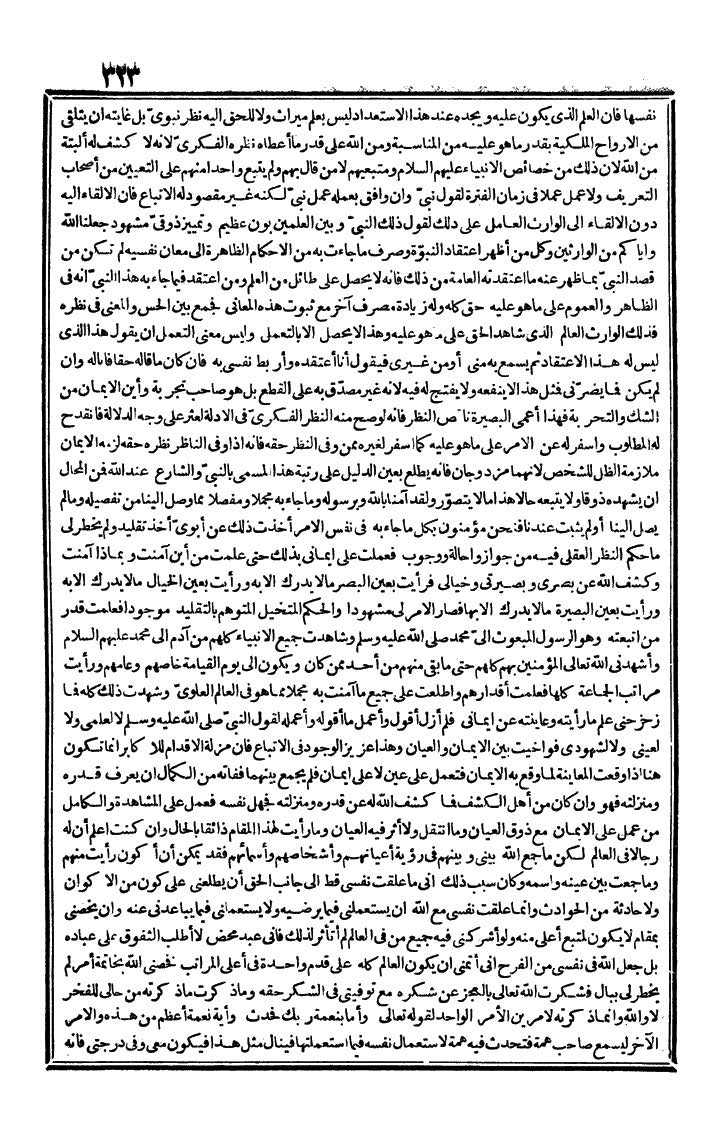 ٣٢٣
نفسها فان العلم الذى يكون عليه ويجده عند هذا الاستعداد ليس بعلم ميراث ولا للحق اليه نظر نبوىّ بل غايته ان يتلقى
من الارواح الملكية بقدر ما هو عليه من المناسبة ومن الله على قدر ما أعطاه نظره الفكرىّ لانه لا كشف له ألبتة
من الله لان ذلك من خصائص الانبياء عليهم السلام ومتبعيهم لا من قال بهم ولم يتبع واحدا منهم على التعيين من أصحاب
التعريف ولا عمل عملا فى زمان الفترة لقول نبىّ وان وافق بعمله عمل نبىّ لكنه غير مقصود له الاتباع فان الالقاء اليه
دون الالقاء الى الوارث العامل على ذلك لقول ذلك النبىّ وبين العلمين بون عظيم وتمييز ذوقىّ مشهود جعلنا الله
واياكم من الوارثين وكل من أظهر اعتقاد النبوّة وصرف ما جاءت به من الاحكام الظاهرة الى معان نفسيه لم تكن من
قصد النبىّ بما ظهر عنه ما اعتقدته العامة من ذلك فانه لا يحصل على طائل من العلم ومن اعتقد فيما جاء به هذا النبىّ انه فى
الظاهر والعموم على ما هو عليه حق كله وله زيادة مصرف آخر مع ثبوت هذه المعانى فجمع بين الحس والمعنى فى نظره
فذلك الوارث العالم الذى شاهد الحق على ما هو عليه وهذا لا يحصل الا بالتعمل وليس معنى التعمل ان يقول هذا الذى
ليس له هذا الاعتقاد ثم يسمع به منى أو من غيرى فيقول أنا أعتقده وأربط نفسى به فان كان ما قاله حقا فأناله وان
لم يكن فما يضرّنى فمثل هذا لا ينفعه ولا يفتح له فيه لانه غير مصدّق به على القطع بل هو صاحب تجربة وأين الايمان من
الشك والتجربة فهذا أعمى البصيرة ناقص النظر فانه لو صح منه النظر الفكرىّ فى الادلة لعثر على وجه الدلالة فانقدح
له المطلوب واسفر له عن الامر على ما هو عليه كما اسفر لغيره ممن وفى النظر حقه فانه اذا وفى الناظر نظره حقه لزمه الايمان
ملازمة الظل للشخص لانهما مزدوجان فانه يطلع بعين الدليل على رتبة هذا المسمى بالنبىّ والشارع عند الله فمن المحال
ان يشهده ذوقا ولا يتبعه حالا هذا ما لا يتصوّر ولقد آمنا بالله وبرسوله وما جاء به مجملا ومفصلا مما وصل الينا من تفصيله وما لم
يصل الينا أو لم يثبت عندنا فنحن مؤمنون بكل ما جاء به فى نفس الامر أخذت ذلك عن أبوىّ أخذ تقليد ولم يخطر لى
ما حكم النظر العقلى فيه من جواز واحالة ووجوب فعملت على ايمانى بذلك حتى علمت من أين آمنت وبماذا آمنت
وكشف الله عن بصرى وبصيرتى وخيالى فرأيت بعين البصر ما لا يدرك الا به ورأيت بعين الخيال ما لا يدرك الا به
ورأيت بعين البصيرة ما لا يدرك الا بها فصار الامر لى مشهودا والحكم المتخيل المتوهم بالتقليد موجودا فعلمت قدر
من اتبعته وهو الرسول المبعوث الىّ محمد صلى الله عليه وسلم وشاهدت جميع الانبياء كلهم من آدم الى محمد عليهم السلام
وأشهدنى الله تعالى المؤمنين بهم كلهم حتى ما بقى منهم من أحد ممن كان ويكون الى يوم القيامة خاصهم وعامهم ورأيت
مراتب الجماعة كلها فعلمت أقدارهم واطلعت على جميع ما آمنت به مجملا مما هو فى العالم العلوىّ وشهدت ذلك كله فما
زحزحنى علم ما رأيته وعاينته عن ايمانى فلم أزل أقول وأعمل ما أقوله وأعمله لقول النبىّ صلى الله عليه وسلم لا لعلمى ولا
لعينى ولا لشهودى فواخيت بين الايمان والعيان وهذا عزيز الوجود فى الاتباع فان مزلة الاقدام للاكابر انما تكون
هنا اذا وقعت المعاينة لما وقع به الايمان فتعمل على عين لا على ايمان فلم يجمع بينهما ففاته من الكمال ان يعرف قدره
ومنزلته فهو وان كان من أهل الكشف فما كشف الله له عن قدره ومنزلته فجهل نفسه فعمل على المشاهدة والكامل
من عمل على الايمان مع ذوق العيان وما انتقل ولا أثر فيه العيان وما رأيت لهذا المقام ذائقا بالحال وان كنت اعلم أن له
رجالا فى العالم لكن ما جمع الله بينى وبينهم فى رؤية أعيانهم وأشخاصهم وأسمائهم فقد يمكن أن أكون رأيت منهم
وما جمعت بين عينه واسمه وكان سبب ذلك انى ما علقت نفسى قط الى جانب الحق أن يطلعنى على كون من الاكوان
ولا حادثة من الحوادث وانما علقت نفسى مع الله ان يستعملنى فيما يرضيه ولا يستعملنى فيما يباعدنى عنه وان يخصنى
بمقام لا يكون لمتبع أعلى منه ولو أشركنى فيه جميع من فى العالم لم أتأثر لذلك فانى عبد محض لا أطلب التفوق على عباده
بل جعل الله فى نفسى من الفرح انى أتمنى ان يكون العالم كله على قدم واحدة فى أعلى المراتب فخصنى الله بخاتمة أمر لم
يخطر لى ببال فشكرت الله تعالى بالعجز عن شكره مع توفيتى فى الشكر حقه وما ذكرت ما ذكرته من حالى للفخر
لا والله وانما ذكرته لامرين الأمر الواحد لقوله تعالى وأما بنعمة ربك فحدث وأية نعمة أعظم من هذه والامر
الآخر ليسمع صاحب همة فتحدث فيه همة لاستعمال نفسه فيما استعملتها فينال مثل هذا فيكون معى وفى درجتى فانه